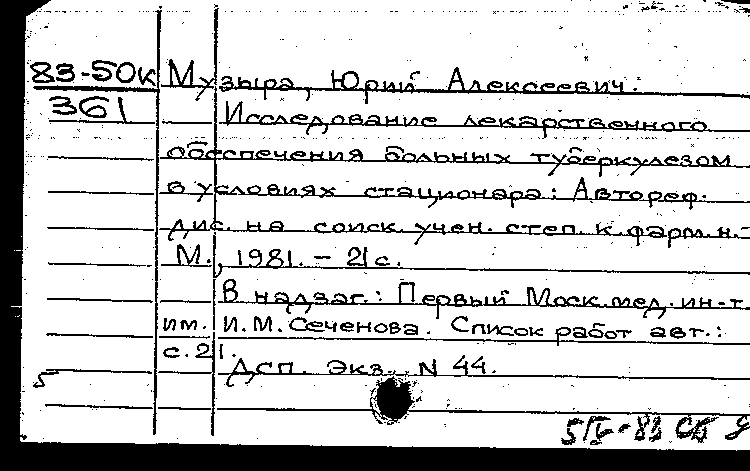 83-50к Музыра, Юрий Алексеевич.
361 Исследование лекарственного
обеспечения больных туберкулезом
в условиях стационара: Автореф.
дис. на соиск. учен. степ. к. фарм. н.-
М., 1981. - 21 с.
В надзаг.: Первый Моск. мед. ин-т
им. И.М. Сеченова. Список работ авт.:
с. 21.
Дсп. Экз. N 44.
5